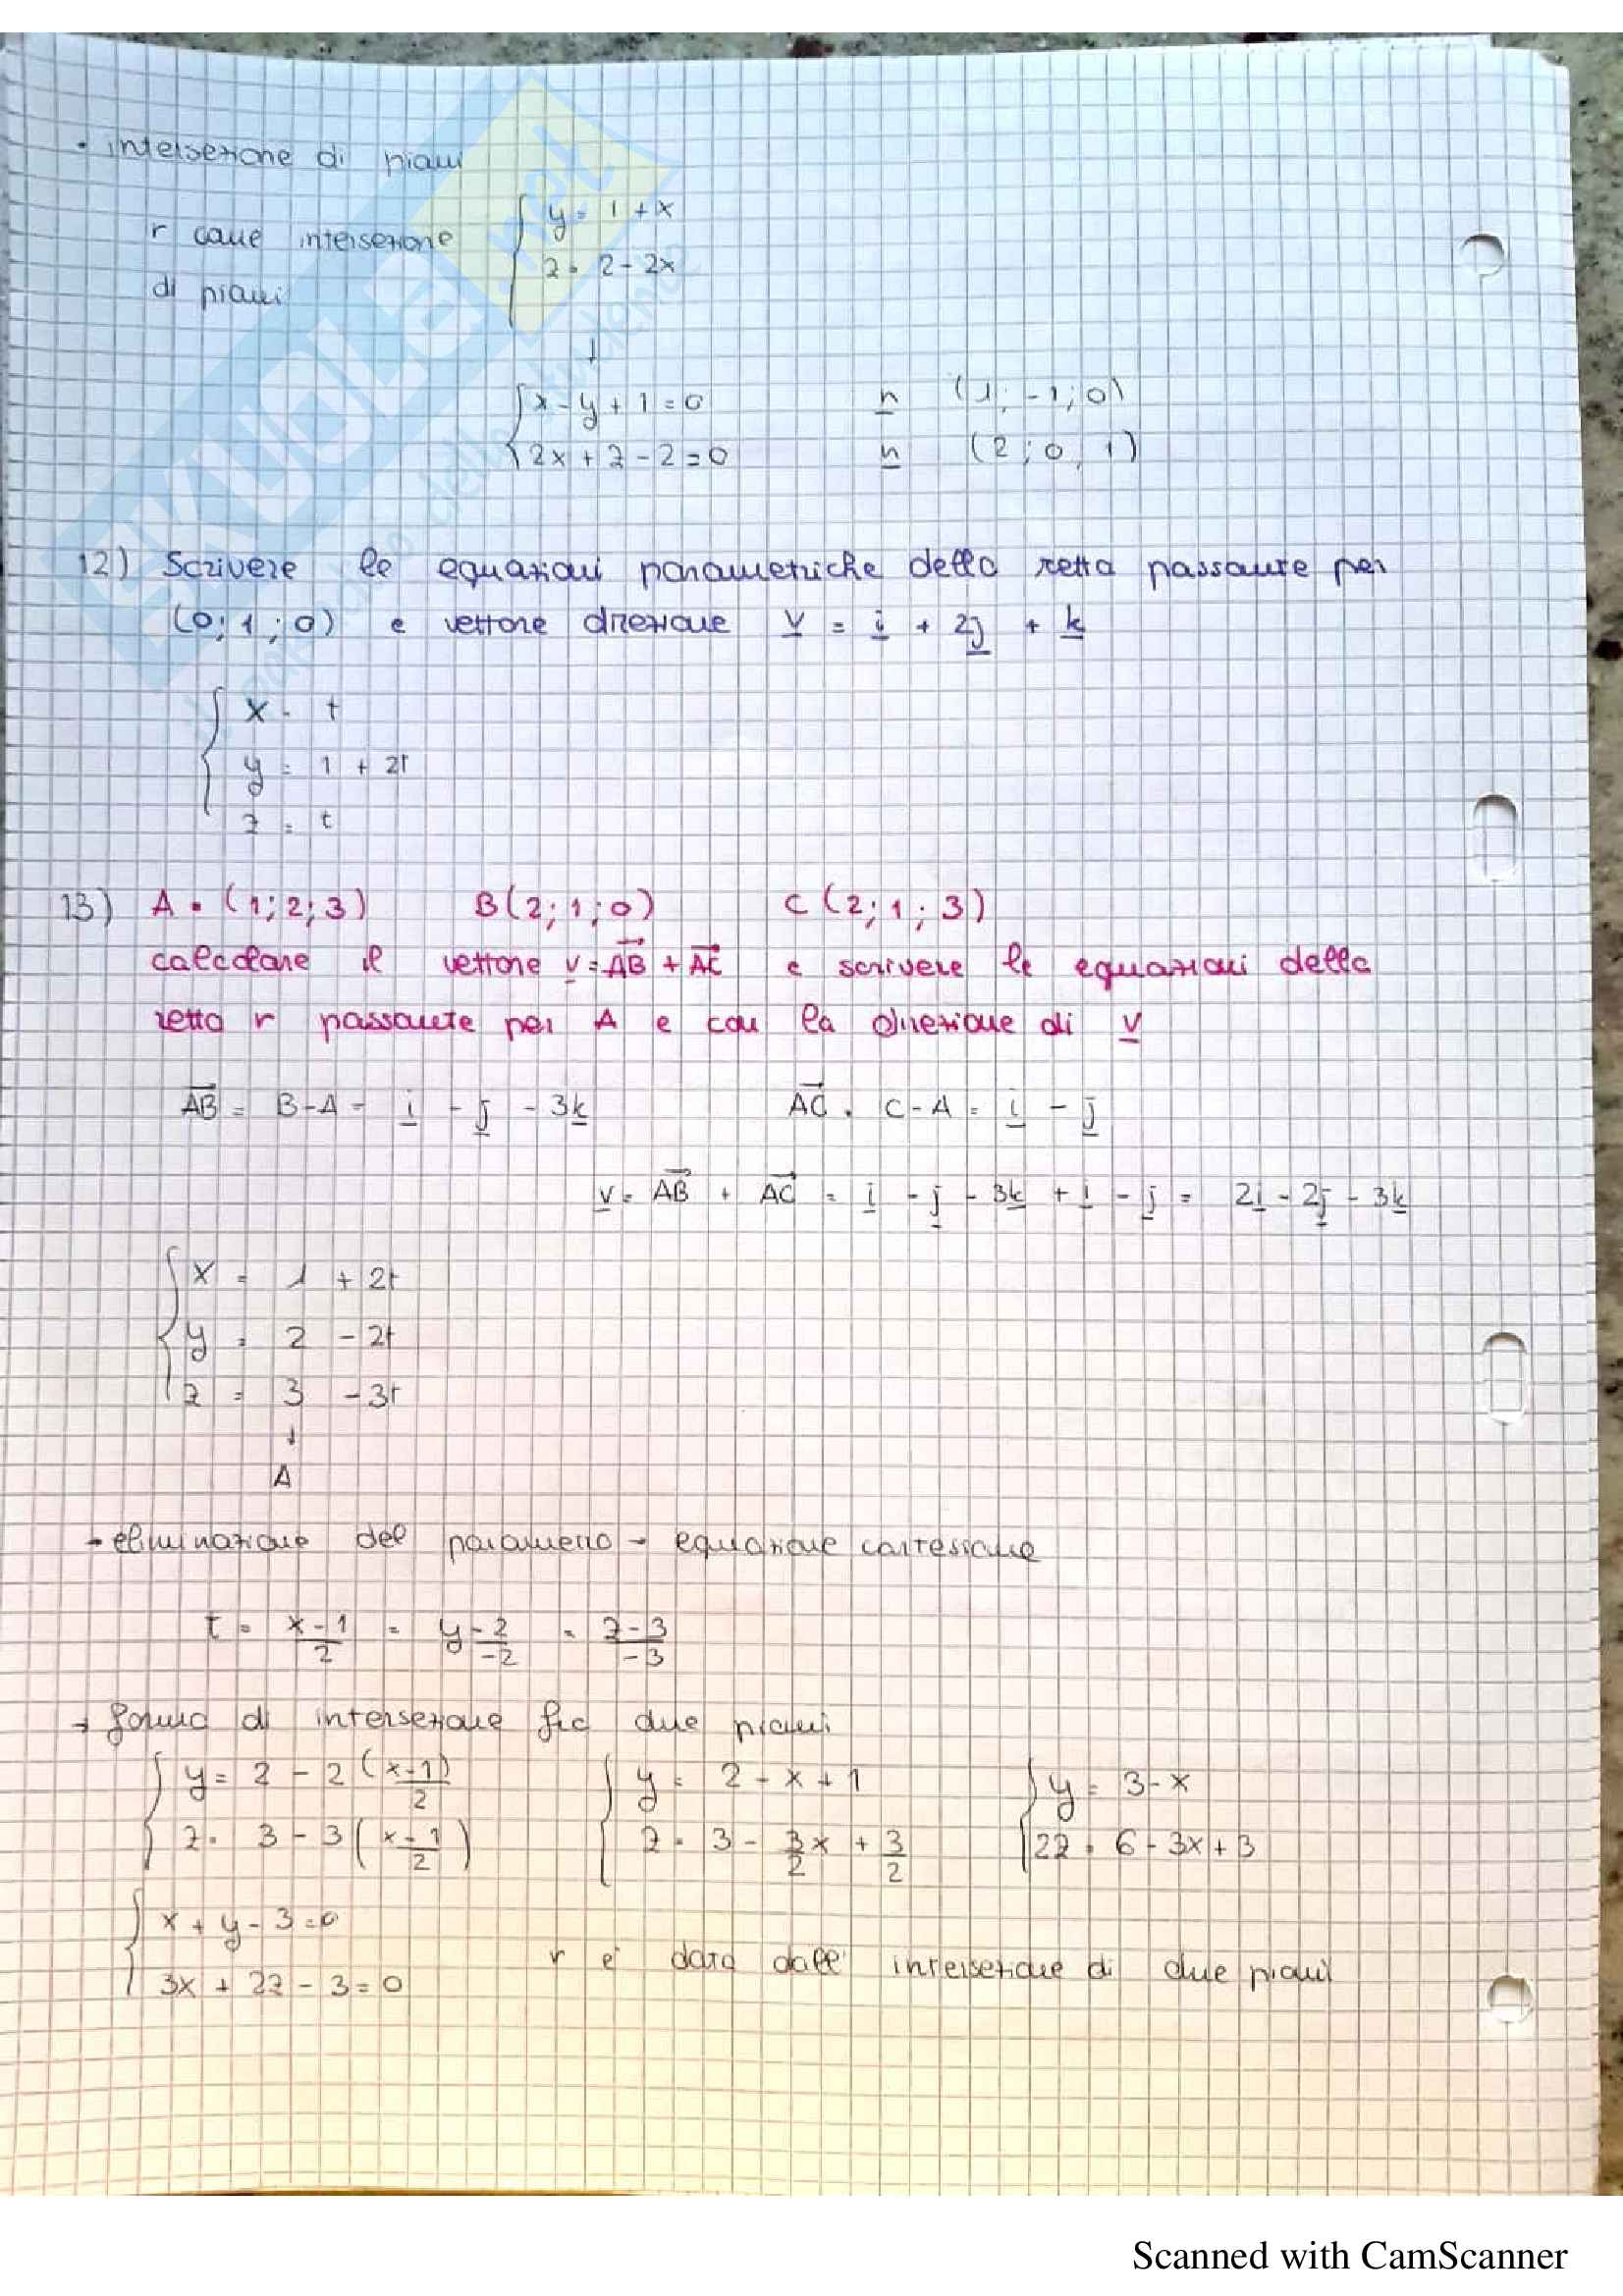 • intersezione di piani
r come intersezione
di piani
{ y = 1 + x
z = 2 - 2x
↓
{ x - y + 1 = 0 n (1; -1; 0)
2x + z - 2 = 0 n (2; 0, 1)
12) Scrivere le equazioni parametriche della retta passante per
(0; 1; 0) e vettore direzione v = i + 2j + k
{ x = t
y = 1 + 2t
z = t
13) A = (1; 2; 3) B(2; 1; 0) C(2; 1; 3)
calcolare il vettore v = AB + AC e scrivere le equazioni della
retta r passante per A e con la direzione di v
AB = B - A = i - j - 3k AC = C - A = i - j
v = AB + AC = i - j - 3k + i - j = 2i - 2j - 3k
{ x = 1 + 2t
y = 2 - 2t
z = 3 - 3t
↓
A
→ eliminazione del parametro → equazione cartesiane
t = (x-1)/2 = (y-2)/-2 = (z-3)/-3
→ forma di intersezione fra due piani
{ y = 2 - 2((x-1)/2) { y = 2 - x + 1 { y = 3 - x
z = 3 - 3((x-1)/2) z = 3 - 3/2 x + 3/2 2z = 6 - 3x + 3
{ x + y - 3 = 0
3x + 2z - 3 = 0 r e' data dall' intersezione di due piani
SKUOLA.net
Scanned with CamScanner